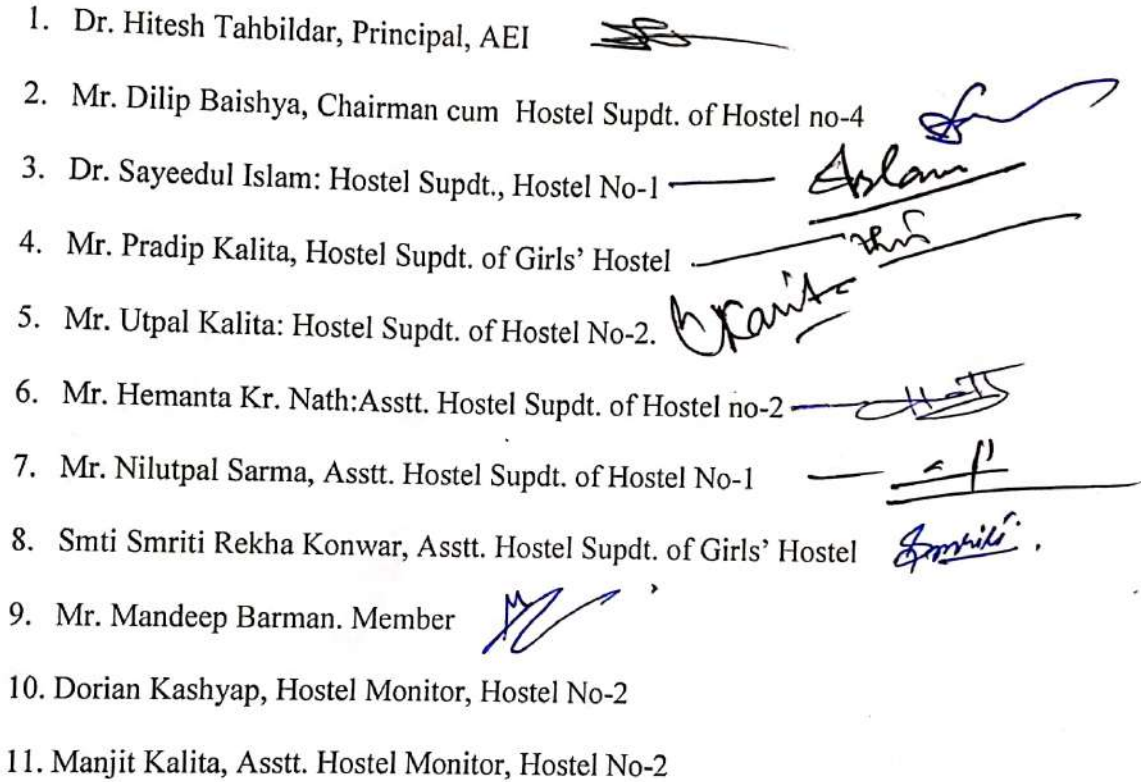 1. Dr. Hitesh Tahbildar, Principal, AEI
2. Mr. Dilip Baishya, Chairman cum Hostel Supdt. of Hostel no-4
3. Dr. Sayeedul Islam: Hostel Supdt., Hostel No-1 Islam
4. Mr. Pradip Kalita, Hostel Supdt. of Girls' Hostel
5. Mr. Utpal Kalita: Hostel Supdt. of Hostel No-2.
6. Mr. Hemanta Kr. Nath:Asstt. Hostel Supdt. of Hostel no-2
7. Mr. Nilutpal Sarma, Asstt. Hostel Supdt. of Hostel No-1
8. Smti Smriti Rekha Konwar, Asstt. Hostel Supdt. of Girls' Hostel Smriti.
9. Mr. Mandeep Barman. Member
10. Dorian Kashyap, Hostel Monitor, Hostel No-2
11. Manjit Kalita, Asstt. Hostel Monitor, Hostel No-2